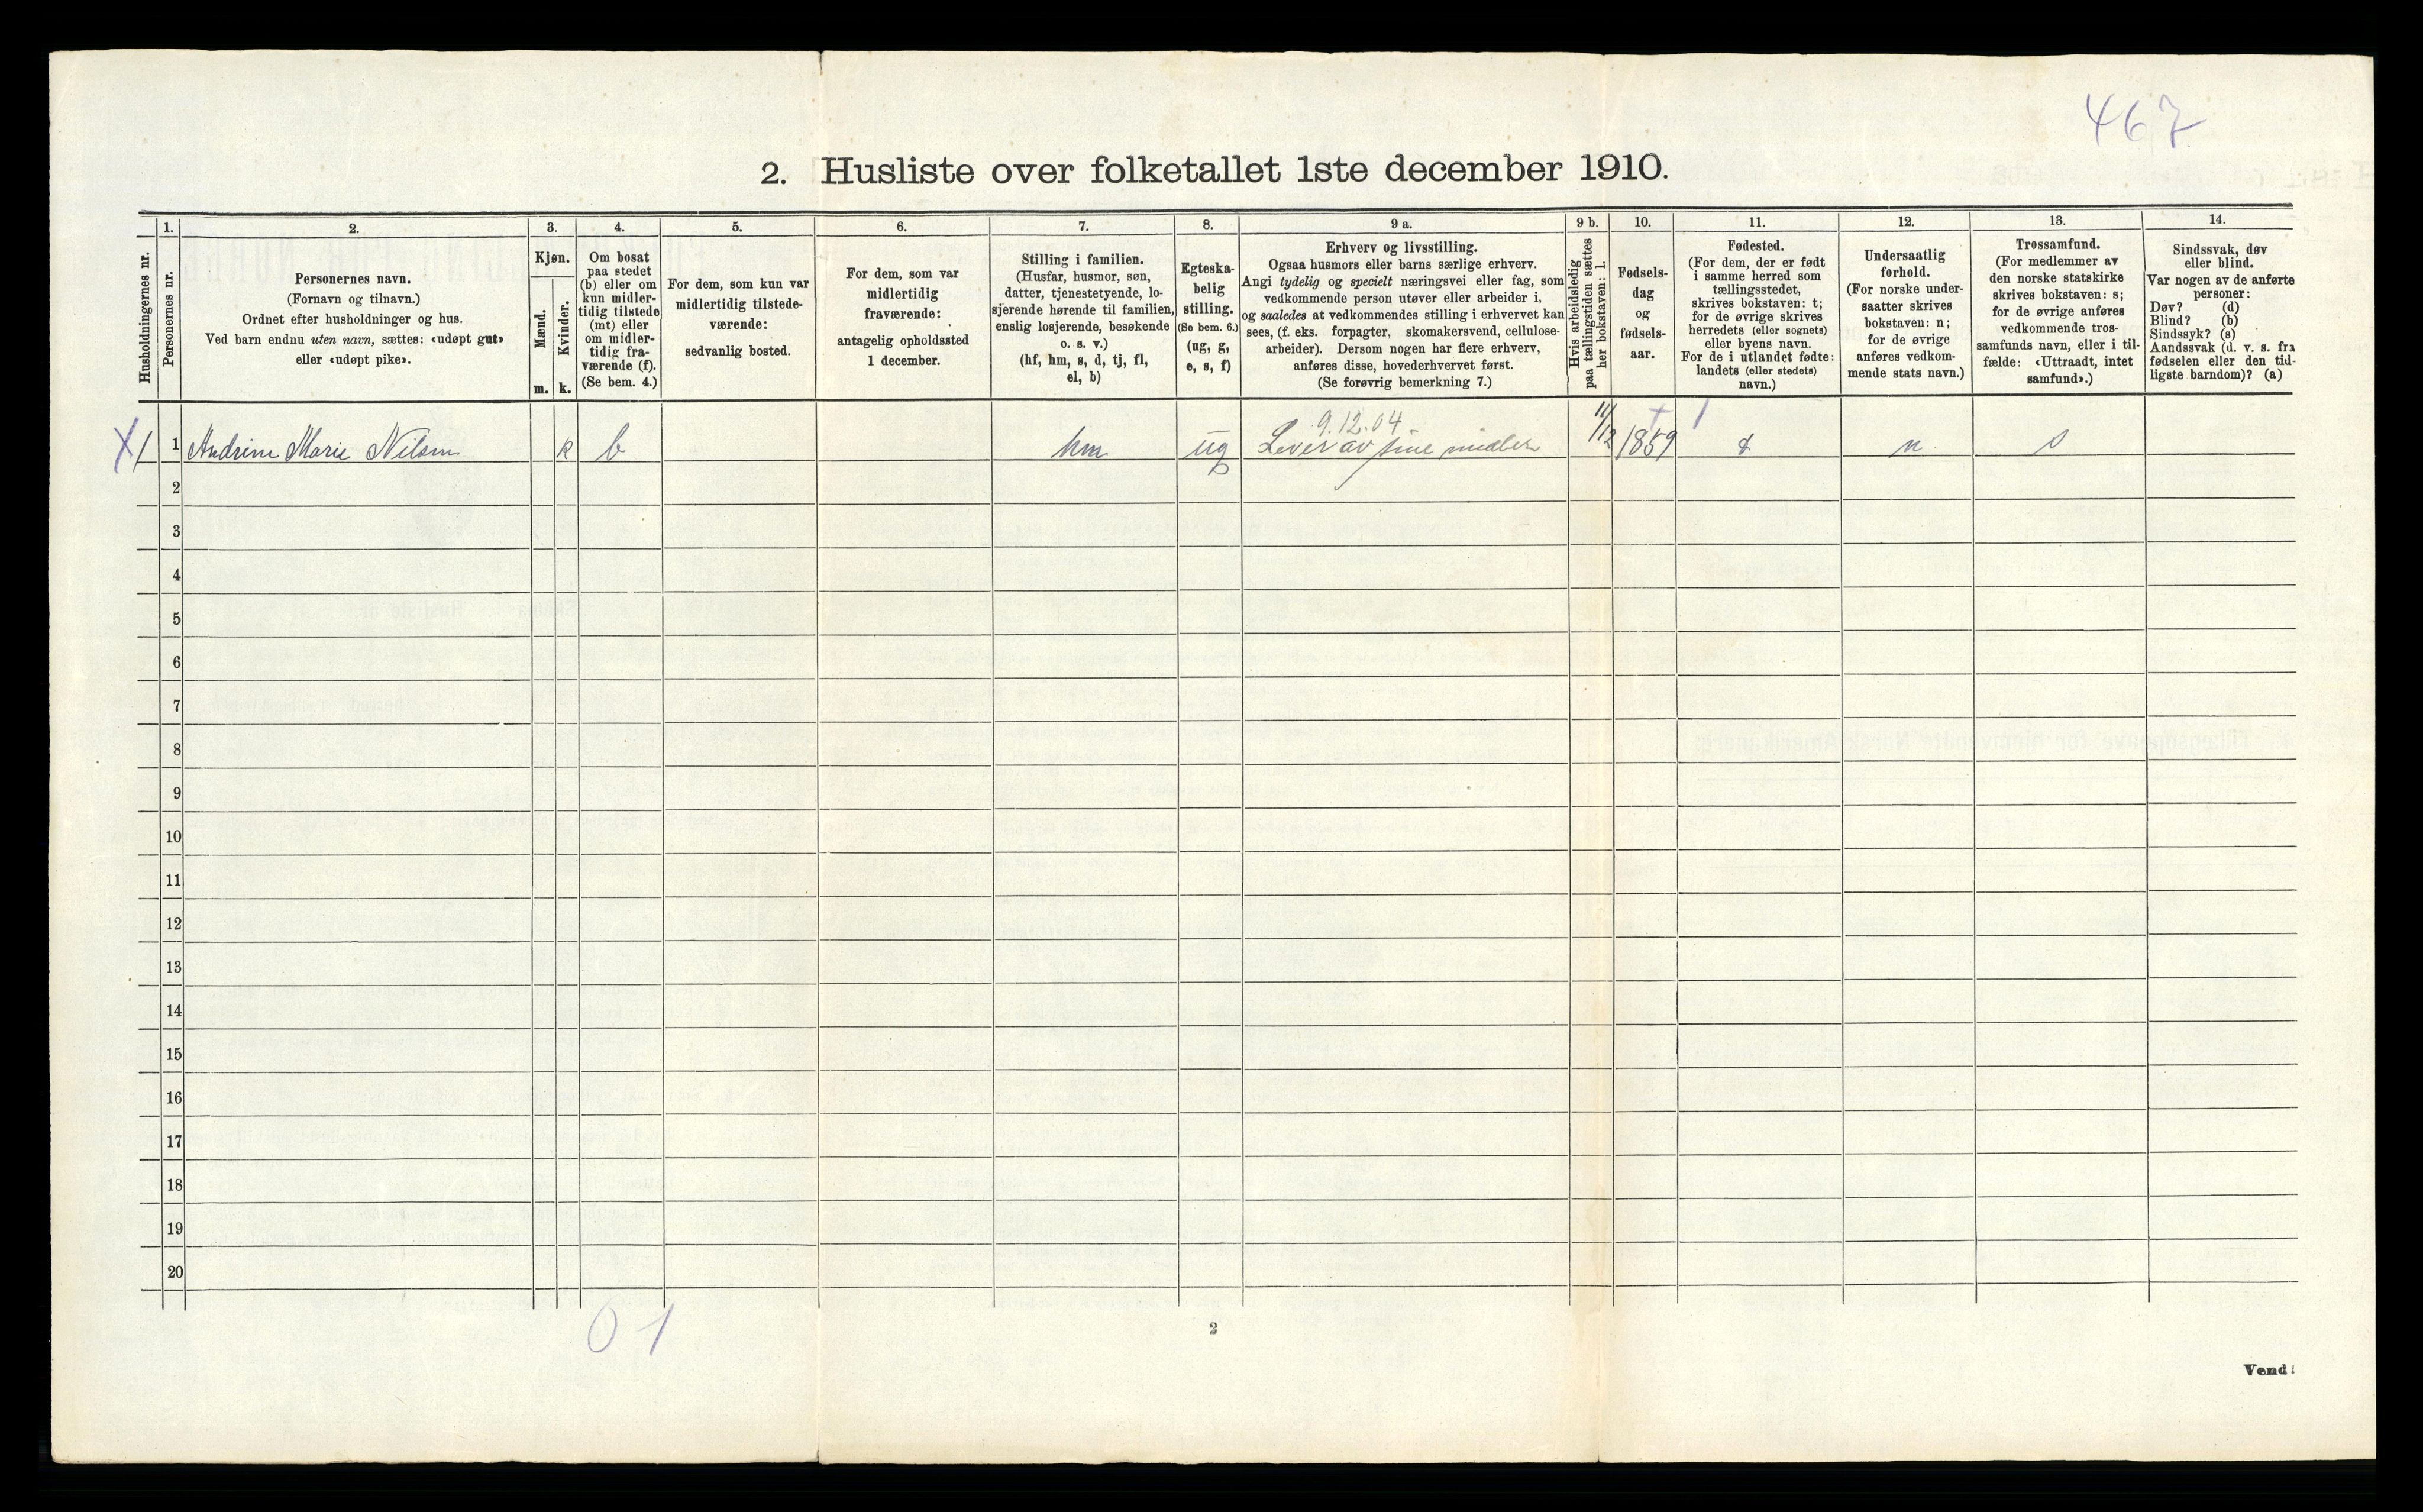 467
2. Husliste over folketallet 1ste december 1910.
Husholdningernes nr.
1.
Personernes nr.
2.
Personernes navn.
(Fornavn og tilnavn.)
Ordnet efter husholdninger og hus.
Ved barn endnu uten navn, sættes: «udøpt gut»
eller «udøpt pike».
3.
Kjøn.
Mænd.
m.
Kvinder.
k.
4.
Om bosat
paa stedet
(b) eller om
kun midler-
tidig tilstede
(mt) eller
om midler-
tidig fra-
værende (f).
(Se bem. 4.)
5.
For dem, som kun var
midlertidig tilstede-
værende:
sedvanlig bosted.
6.
For dem, som var
midlertidig
fraværende:
antagelig opholdssted
1 december.
7.
Stilling i familien.
(Husfar, husmor, søn,
datter, tjenestetyende, lo-
sjerende hørende til familien,
enslig losjerende, besøkende
o. s. v.)
(hf, hm, s, d, tj, fl,
el, b)
8.
Egteska-
belig
stilling.
(Se bem. 6.)
(ug, g,
e, s, f)
9 a.
Erhverv og livsstilling.
Ogsaa husmors eller barns særlige erhverv.
Angi tydelig og specielt næringsvei eller fag, som
vedkommende person utøver eller arbeider i,
og saaledes at vedkommendes stilling i erhvervet kan
sees, (f. eks. forpagter, skomakersvend, cellulose-
arbeider). Dersom nogen har flere erhverv,
anføres disse, hovederhvervet først.
(Se forøvrig bemerkning 7.)
9 b.
Hvis arbeidsledig
paa tællingstiden sættes
her bokstaven: l.
10.
Fødsels-
dag
og
fødsels-
aar.
11.
Fødested.
(For dem, der er født
i samme herred som
tællingsstedet,
skrives bokstaven: t;
for de øvrige skrives
herredets (eller sognets)
eller byens navn.
For de i utlandet fødte:
landets (eller stedets)
navn.)
12.
Undersaatlig
forhold.
(For norske under-
saatter skrives
bokstaven: n;
for de øvrige
anføres vedkom-
mende stats navn.)
13.
Trossamfund.
(For medlemmer av
den norske statskirke
skrives bokstaven: s;
for de øvrige anføres
vedkommende tros-
samfunds navn, eller i til-
fælde: «Uttraadt, intet
samfund».)
14.
Sindssvak, døv
eller blind.
Var nogen av de anførte
personer:
Døv? (d)
Blind? (b)
Sindssyk? (s)
Aandssvak (d. v. s. fra
fødselen eller den tid-
ligste barndom)? (a)
9.12.04
X 1 1 Andrine Marie Nilsen k b hm ug Lever av sine midler 11/12 1859 t n s
2
3
4
5
6
7
8
9
10
11
12
13
14
15
16
17
18
19
20
0 1
2
Vend!